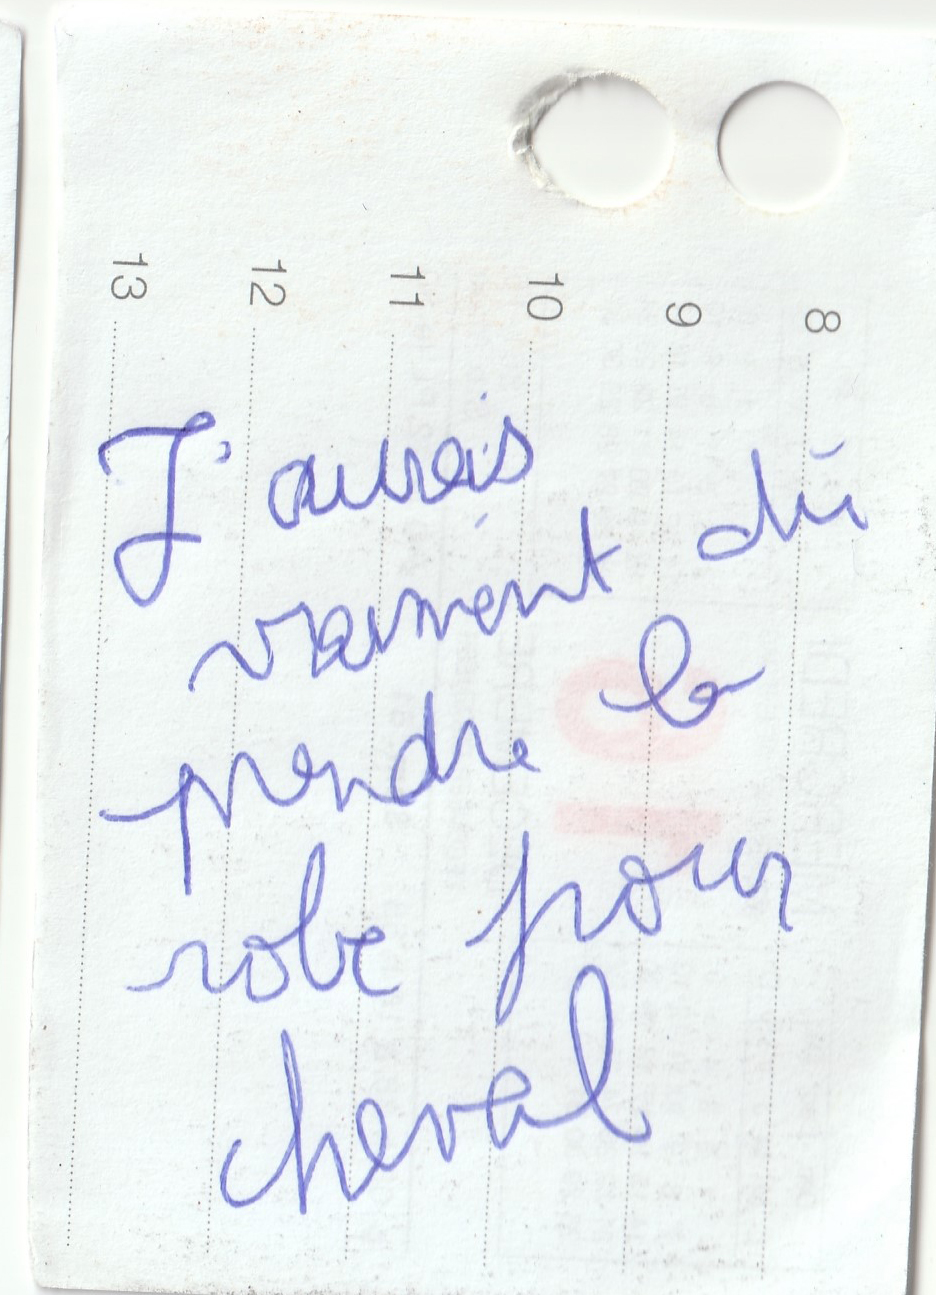 13
12
11
10
9
8
J'aurais
vraiment dû
prendre la
robe pour
cheval